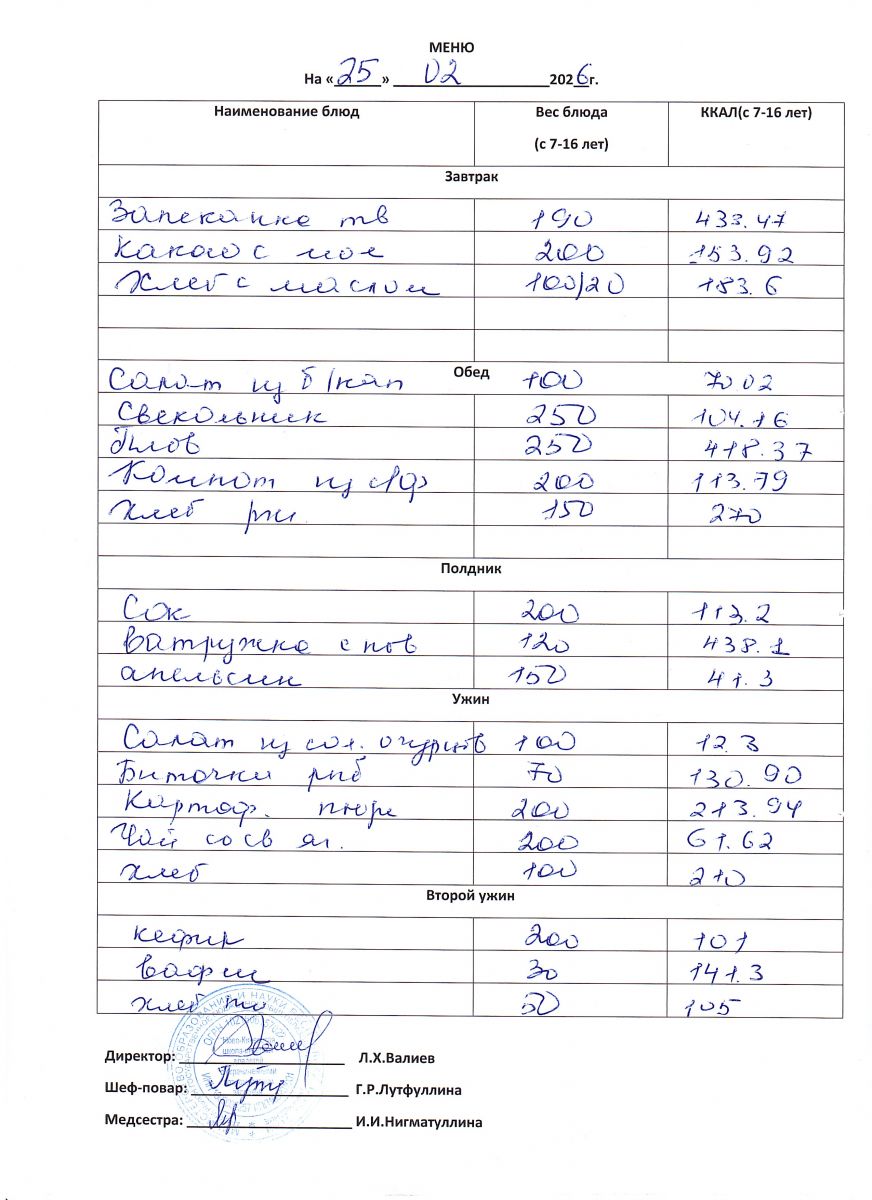 МЕНЮ
На «25» 02 2026г.
Наименование блюд Вес блюда (с 7-16 лет) ККАЛ(с 7-16 лет)
Завтрак
Запеканка тв 190 433.47
Какао с мол 200 153.92
Хлеб с маслом 100/20 183.6
Обед
Салат из б/кап 100 70 02
Свекольник 250 104.16
Плов 250 418.37
Компот из с/ф 200 113.79
Хлеб рж 150 270
Полдник
Сок 200 113.2
Ватружка с пов 120 438.1
апельсин 150 41.3
Ужин
Салат из сол. огурцов 100 12.3
Биточки рыб 70 130.90
Картоф. пюре 200 213.94
Чай со св яг. 200 61.62
Хлеб 100 210
Второй ужин
кефир 200 101
вафли 30 141.3
хлеб 50 105
Директор: Л.Х.Валиев
Шеф-повар: Г.Р.Лутфуллина
Медсестра: И.И.Нигматуллина